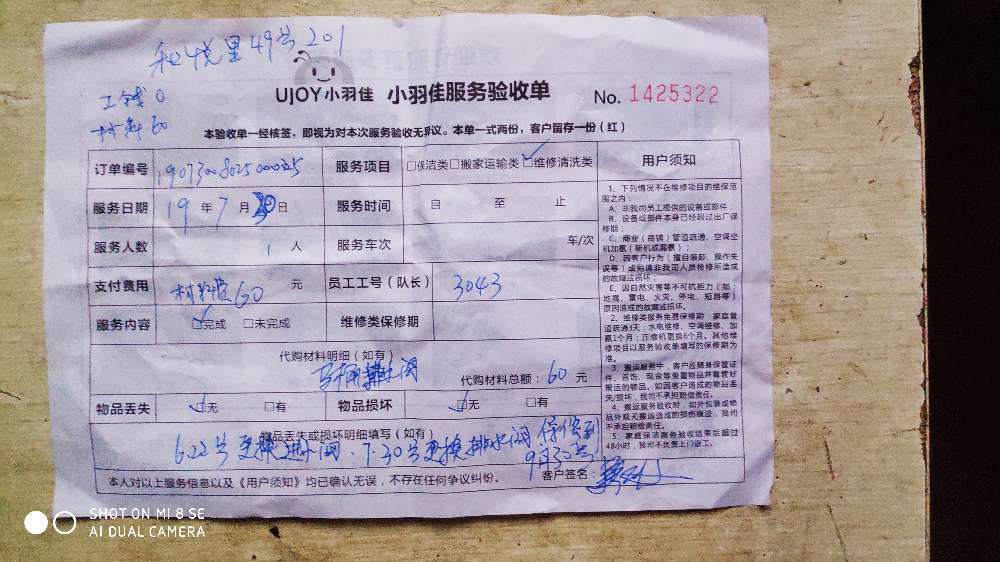 和悦里49号201
工钱0
材料60
UJOY小羽佳 小羽佳服务验收单 No. 1425322
本验收单一经核签，即视为对本次服务验收无异议。本单一式两份，客户留存一份（红）
订单编号 服务项目 □保洁类□搬家运输类☑维修清洗类 用户须知
服务日期 19年7月30日 服务时间 自 至 止
服务人数 1人 服务车次 车/次
支付费用 材料费60元 员工工号（队长） 3043
服务内容 ☑完成 □未完成 维修类保修期
代购材料明细（如有）
马桶排水阀 代购材料总额：60元
物品丢失 ☑无 □有 物品损坏 ☑无 □有
物品丢失或损坏明细填写（如有）
6.22号更换进水阀、7.30号更换排水阀 保修到
9月30号
本人对以上服务信息以及《用户须知》均已确认无误，不存在任何争议纠纷。 客户签名：
1、下列情况不在维修项目的维保范
围之内：
A、非我司员工提供的设备或部件；
B、设备或部件本身已经超过出厂保
修期；
C、商业（商铺）管道疏通、空调空
机加氨（新机或漏氨）；
D、因客户行为（擅自装卸、操作失
误等）或另通非我司人员检修所造成
的故障或损坏；
E、因自然灾害等不可抗拒力（如：
地震、雷电、火灾、停电、短路等）
原因造成的故障或损坏。
2、维修类服务免费保修期：家庭管
道疏通3天；水电维修、空调维修、加
氨1个月；压缩机更换6个月。其他维
修项目以服务验收单填写的保修期为
准。
3、搬运服务中，客户应随身保管证
件、首饰、现金等贵重物品并看管好
搬运的物品。如因客户造成的物品丢
失/损坏，我司不承担赔偿责任。
4、搬运服务验收时，如外包装或物
品外观无搬运造成的损伤痕迹，我司
不承担赔偿责任。
5、家庭保洁服务验收结束后超过
48小时，我司不负责上门返工。
SHOT ON MI 8 SE
AI DUAL CAMERA